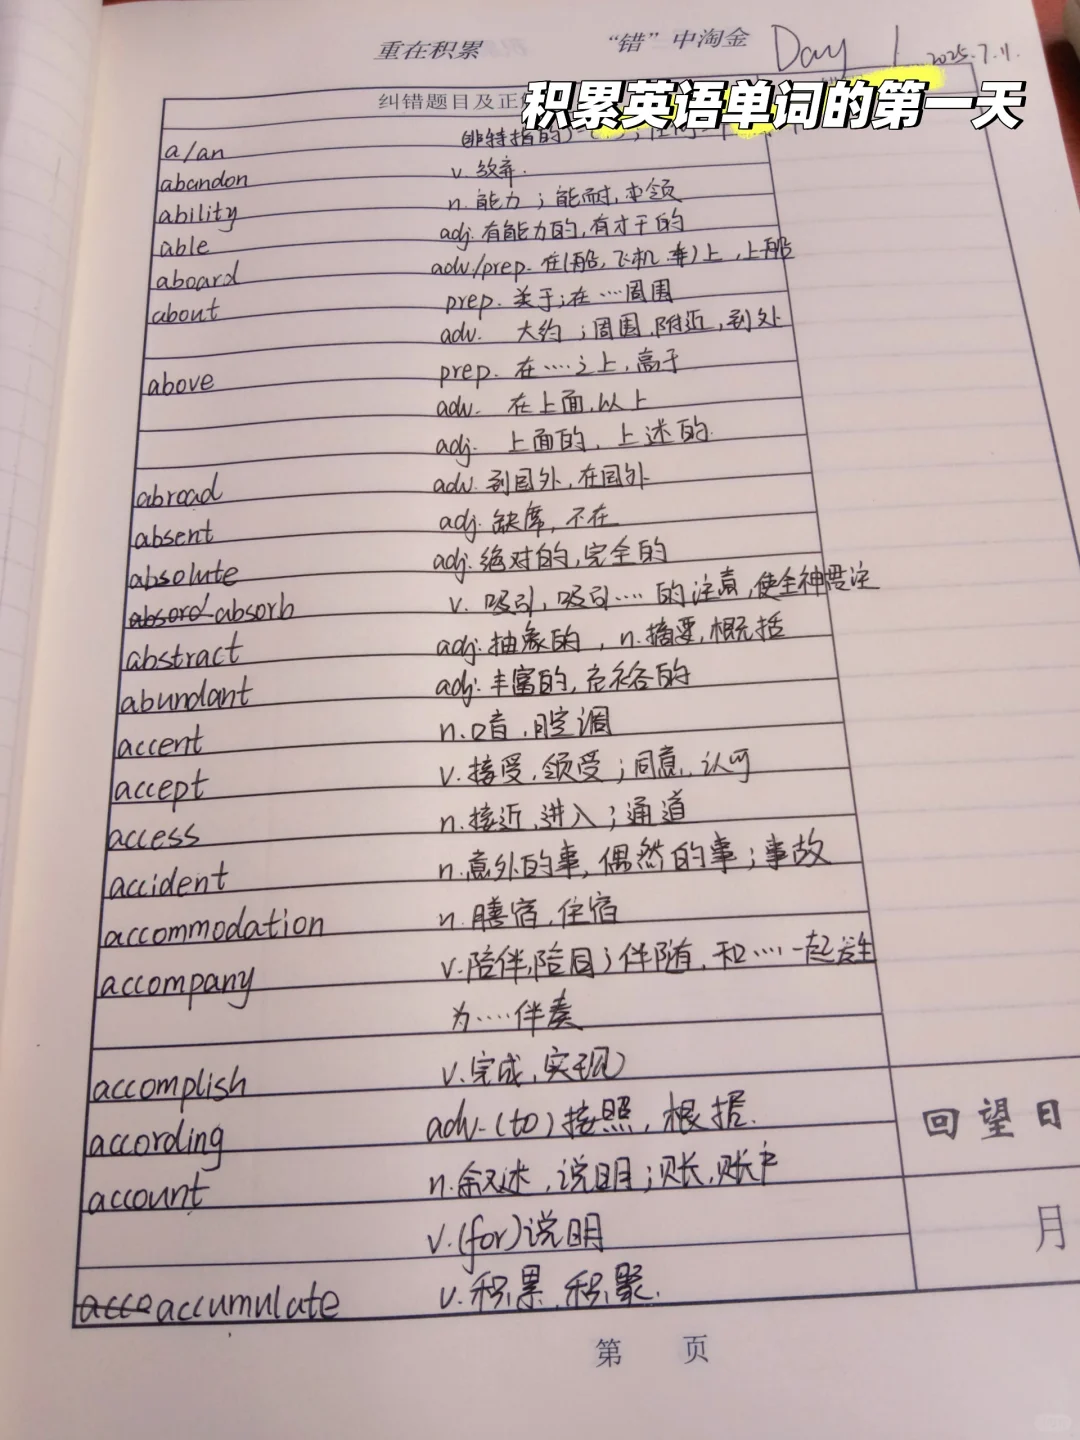 重在积累 “错”中淘金 Day 1 2025.7.11.
积累英语单词的第一天
纠错题目及正
a/an (非特指的)
abandon v. 放弃.
ability n. 能力；能耐,本领
able adj. 有能力的,有才干的
aboard adv./prep. 在(船,飞机,车)上,上船
about prep. 关于;在……周围
adv. 大约；周围,附近,到处
above prep. 在……之上,高于
adv. 在上面,以上
adj. 上面的,上述的.
abroad adv. 到国外,在国外
absent adj. 缺席,不在
absolute adj. 绝对的,完全的
absord absorb v. 吸引,吸引……的注意,使全神贯注
abstract adj. 抽象的,n. 摘要,概括
abundant adj. 丰富的,充裕的
accent n. 口音,腔调
accept v. 接受,领受；同意,认可
access n. 接近,进入；通道
accident n. 意外的事,偶然的事；事故
accommodation n. 膳宿,住宿
accompany v. 陪伴,陪同；伴随,和……一起发生
为……伴奏
accomplish v. 完成,实现
according adv. (to) 按照,根据.
account n. 叙述,说明；账,账户
v. (for) 说明
acco accumulate v. 积累,积聚.
回望日
月
第 页